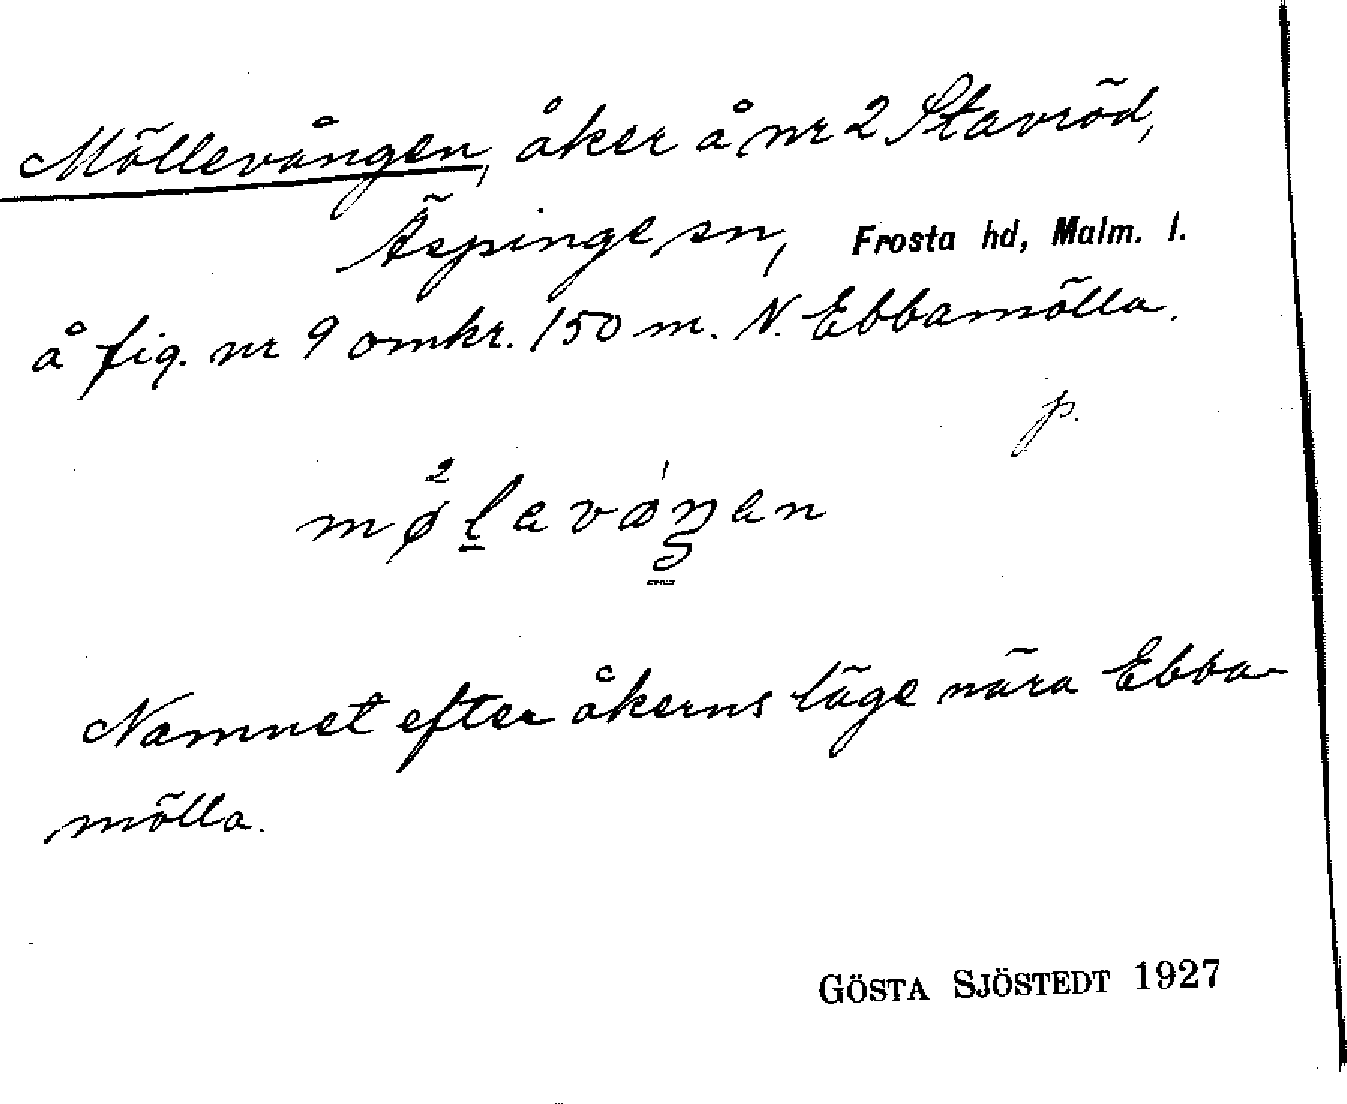 Möllevången, åker å nr 2 Stavröd,
Äspinge sn, Frosta hd, Malm. l.
å fig. nr 9 omkr. 150 m. N. Ebbamölla.
p.
Namnet efter åkerns läge nära Ebba-
mölla.
GÖSTA SJÖSTEDT 1927